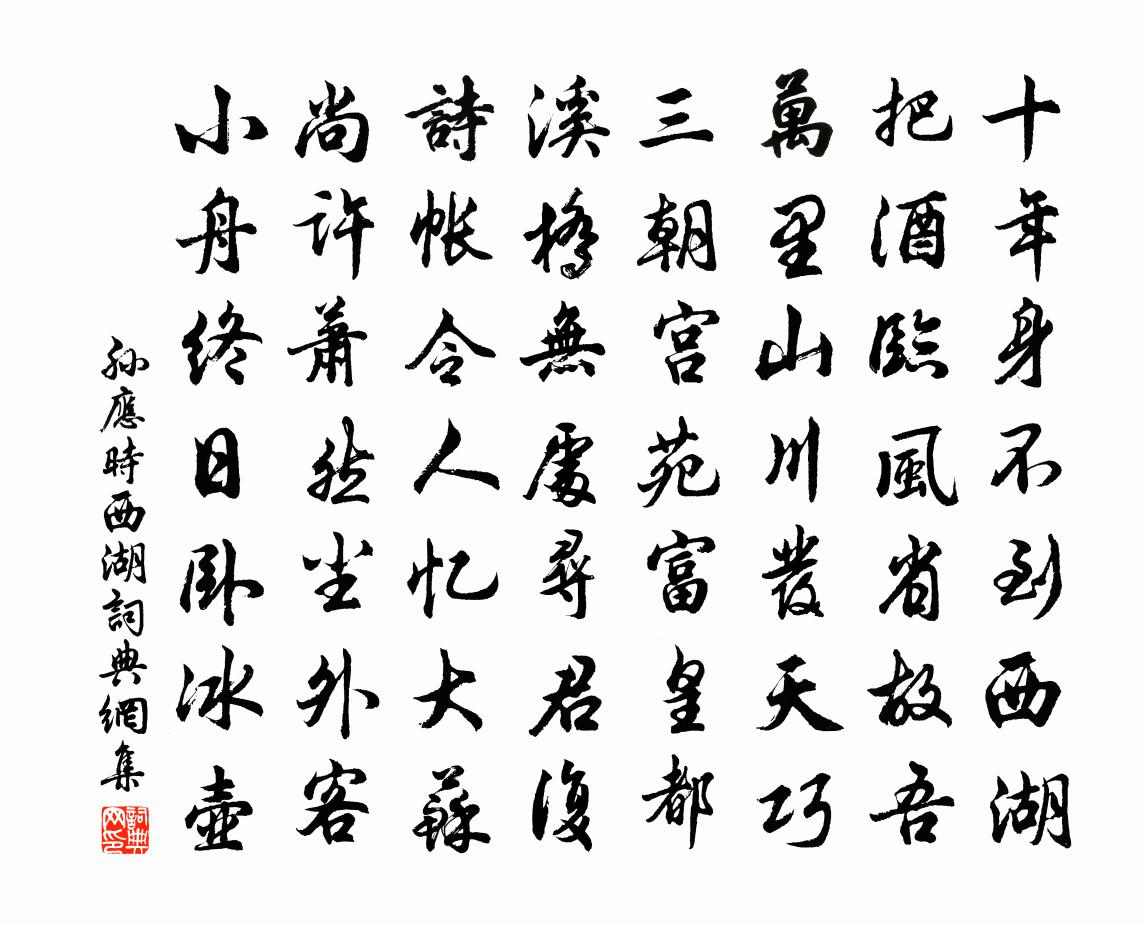 十年身不到西湖
把酒臨風省故吾
萬里山川發天巧
三朝宮苑富皇都
溪橋無處尋君復
詩帳令人忆大蘇
尚許蕭然尘外客
小舟終日卧冰壺
孫應時西湖詞典網集
詞典网印